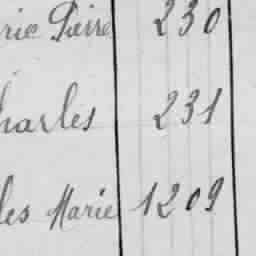 rie Pierre 230
harles 231
les Marie 1209